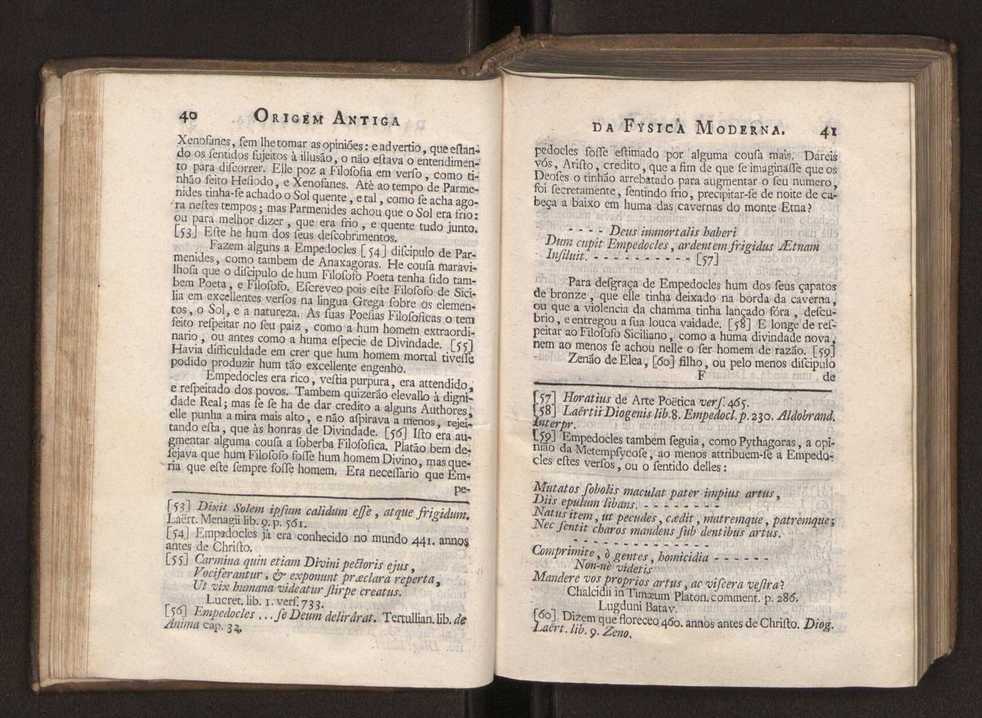 40 ORIGEM ANTIGA
Xenofanes, ſem lhe tomar as opiniões: e advertio, que eſtan-
do os ſentidos ſujeitos à illuſão, o não eſtava o entendimen-
to para diſcorrer. Elle poz a Filoſofia em verſo, como ti-
nhão feito Heſiodo, e Xenofanes. Atè ao tempo de Parme-
nides tinha-ſe achado o Sol quente, e tal, como ſe acha ago-
ra neſtes tempos; mas Parmenides achou que o Sol era frio:
ou para melhor dizer, que era frio, e quente tudo junto.
[53] Eſte he hum dos ſeus deſcobrimentos.
Fazem alguns a Empedocles [54] diſcipulo de Par-
menides, como tambem de Anaxagoras. He couſa maravi-
lhoſa que o diſcipulo de hum Filoſofo Poeta tenha ſido tam-
bem Poeta, e Filoſofo. Eſcreveo pois eſte Filoſofo de Sici-
lia em excellentes verſos na lingua Grega ſobre os elemen-
tos, o Sol, e a natureza. As ſuas Poeſias Filoſoficas o tem
feito reſpeitar no ſeu paiz, como a hum homem extraordi-
nario, ou antes como a huma eſpecie de Divindade. [55]
Havia difficuldade em crer que hum homem mortal tiveſſe
podido produzir hum tão excellente engenho.
Empedocles era rico, veſtia purpura, era attendido,
e reſpeitado dos povos. Tambem quizerão elevallo à digni-
dade Real; mas ſe ſe ha de dar credito a alguns Authores,
elle punha a mira mais alto, e não aſpirava a menos, rejei-
tando eſta, que às honras de Divindade. [56] Iſto era au-
gmentar alguma couſa a ſoberba Filoſofica. Platão bem de-
ſejava que hum Filoſofo foſſe hum homem Divino, mas que-
ria que eſte ſempre foſſe homem. Era neceſſario que Em-
pe-
[53] Dixit Solem ipſum calidum eſſe, atque frigidum.
Laërt. Menagii lib. 9. p. 561.
[54] Empedocles já era conhecido no mundo 441. annos
antes de Chriſto.
[55] Carmina quin etiam Divini pectoris ejus,
Vociferantur, & exponunt præclara reperta,
Ut vix humana videatur ſtirpe creatus.
Lucret. lib. 1. verſ. 733.
[56] Empedocles ... ſe Deum delirârat. Tertullian. lib. de
Anima cap. 32.
DA FYSICA MODERNA. 41
pedocles foſſe eſtimado por alguma couſa mais. Dareis
vós, Ariſto, credito, que a fim de que ſe imaginaſſe que os
Deoſes o tinhão arrebatado para augmentar o ſeu numero,
foi ſecretamente, ſentindo frio, precipitar-ſe de noite de ca-
beça a baixo em huma das cavernas do monte Etna?
- - - - Deus immortalis haberi
Dum cupit Empedocles, ardentem frigidus Ætnam
Inſiluit. - - - - - - - - - - [57]
Para deſgraça de Empedocles hum dos ſeus çapatos
de bronze, que elle tinha deixado na borda da caverna,
ou que a violencia da chamma tinha lançado fóra, deſcu-
brio, e entregou a ſua louca vaidade. [58] E longe de reſ-
peitar ao Filoſofo Siciliano, como a huma divindade nova,
nem ao menos ſe achou nelle o ſer homem de razão. [59]
Zenão de Elea, [60] filho, ou pelo menos diſcipulo
F de
[57] Horatius de Arte Poëtica verſ. 465.
[58] Laërtii Diogenis lib. 8. Empedocl. p. 230. Aldobrand.
Interpr.
[59] Empedocles tambem ſeguia, como Pythagoras, a opi-
nião da Metempſycoſe, ao menos attribuem-ſe a Empedo-
cles eſtes verſos, ou o ſentido delles:
Mutatos ſobolis maculat pater impius artus,
Diis epulum libans. - - - - - - - - -
Natus item, ut pecudes, cædit, matremque, patremque;
Nec ſentit charos mandens ſub dentibus artus.
- - - - - - - - - - - - - - - - - - -
Comprimite, ò gentes, homicidia - - - - - -
Non-nè videtis
Mandere vos proprios artus, ac viſcera veſtra?
Chalcidii in Timæum Platon. comment. p. 286.
Lugduni Batav.
[60] Dizem que floreceo 460. annos antes de Chriſto. Diog.
Laërt. lib. 9. Zeno.